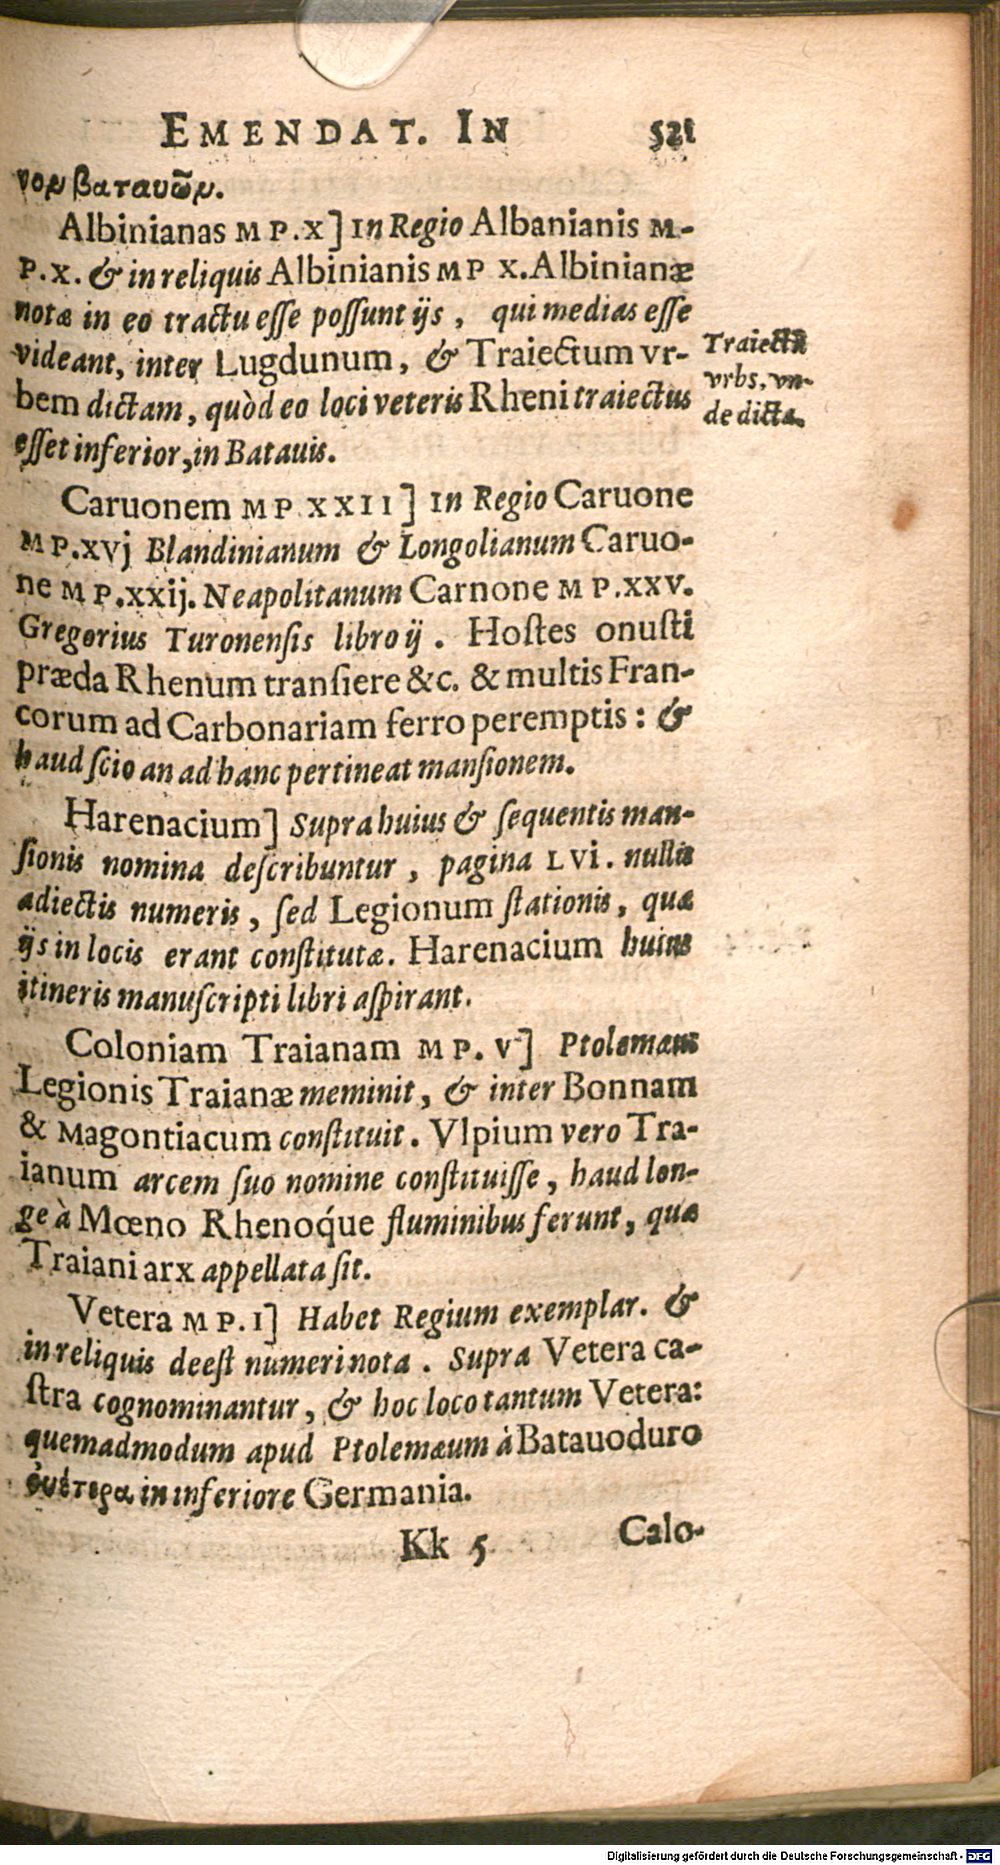 EMENDAT. IN 521
νον βαταυῶν.
Albinianas MP.X] In Regio Albanianis M-
P.X. & in reliquis Albinianis MP X. Albinianæ
notæ in eo tractu esse possunt ijs, qui medias esse
videant, inter Lugdunum, & Traiectum vr-
bem dictam, quòd eo loci veteris Rheni traiectus
esset inferior, in Batauis.
Traiectũ
vrbs, vn-
de dicta.
Caruonem MP XXII] In Regio Caruone
MP.xvj Blandinianum & Longolianum Caruo-
ne MP.xxij. Neapolitanum Carnone MP.xxv.
Gregorius Turonensis libro ij. Hostes onusti
præda Rhenum transiere &c. & multis Fran-
corum ad Carbonariam ferro peremptis: &
haud scio an ad hanc pertineat mansionem.
Harenacium] Supra huius & sequentis man-
sionis nomina describuntur, pagina LVI. nullis
adiectis numeris, sed Legionum stationis, quæ
ijs in locis erant constitutæ. Harenacium huius
itineris manuscripti libri aspirant.
Coloniam Traianam MP. V] Ptolemæus
Legionis Traianæ meminit, & inter Bonnam
& Magontiacum constituit. Vlpium vero Tra-
ianum arcem suo nomine constituisse, haud lon-
ge à Mœno Rhenoq́ue fluminibus ferunt, quæ
Traiani arx appellata sit.
Vetera MP.I] Habet Regium exemplar. &
in reliquis deest numeri nota. Supra Vetera ca-
stra cognominantur, & hoc loco tantum Vetera:
quemadmodum apud Ptolemæum à Batauoduro
ὀυέτερα in inferiore Germania.
Kk 5 Calo-
Digitalisierung gefördert durch die Deutsche Forschungsgemeinschaft - DFG